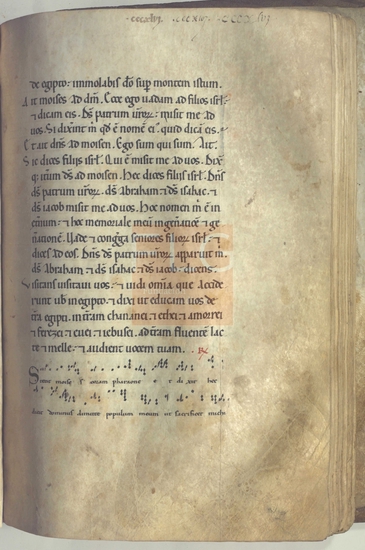 de egipto: immolabis dō sup montem istum.
Ait moises ad dnm. Ecce ego uadam ad filios isrl.
& dicam eis. Ds patrum uror misit me ad
uos. Si dixint m qd ē nomē ei quid dicā eis.
Et ait dns ad moisen. Ego sum qui sum. Ait.
Sic dices filiis isrl. Qui ē misit me ad uos. Dixit
q; itum ds ad moisen. Hec dices filiis isrl. Dns
ds patrum uror. ds Abraham & ds isahac &
ds iacob misit me ad uos. Hoc nomen m ē in
etnum: & hoc memoriale meū in genatione & ge
natione. Uade & congga seniores filior isrl. &
dices ad eos. Dns ds patrum uror apparuit m.
ds Abraham & ds isahac & ds iacob: dicens.
Uisitans uisitaui uos: & uidi omnia que Accide
runt uob in egipto: & dixi ut educam uos de
tra egipti. in tram chananei & ethei & amorrei
& ferezei & euei & iebusei. ad tram fluentē lac
te & melle. & audient uocem tuam. R
Stetit moises coram pharaone et dixit hec
dicit dominus dimitte populum meum ut sacrificet michi